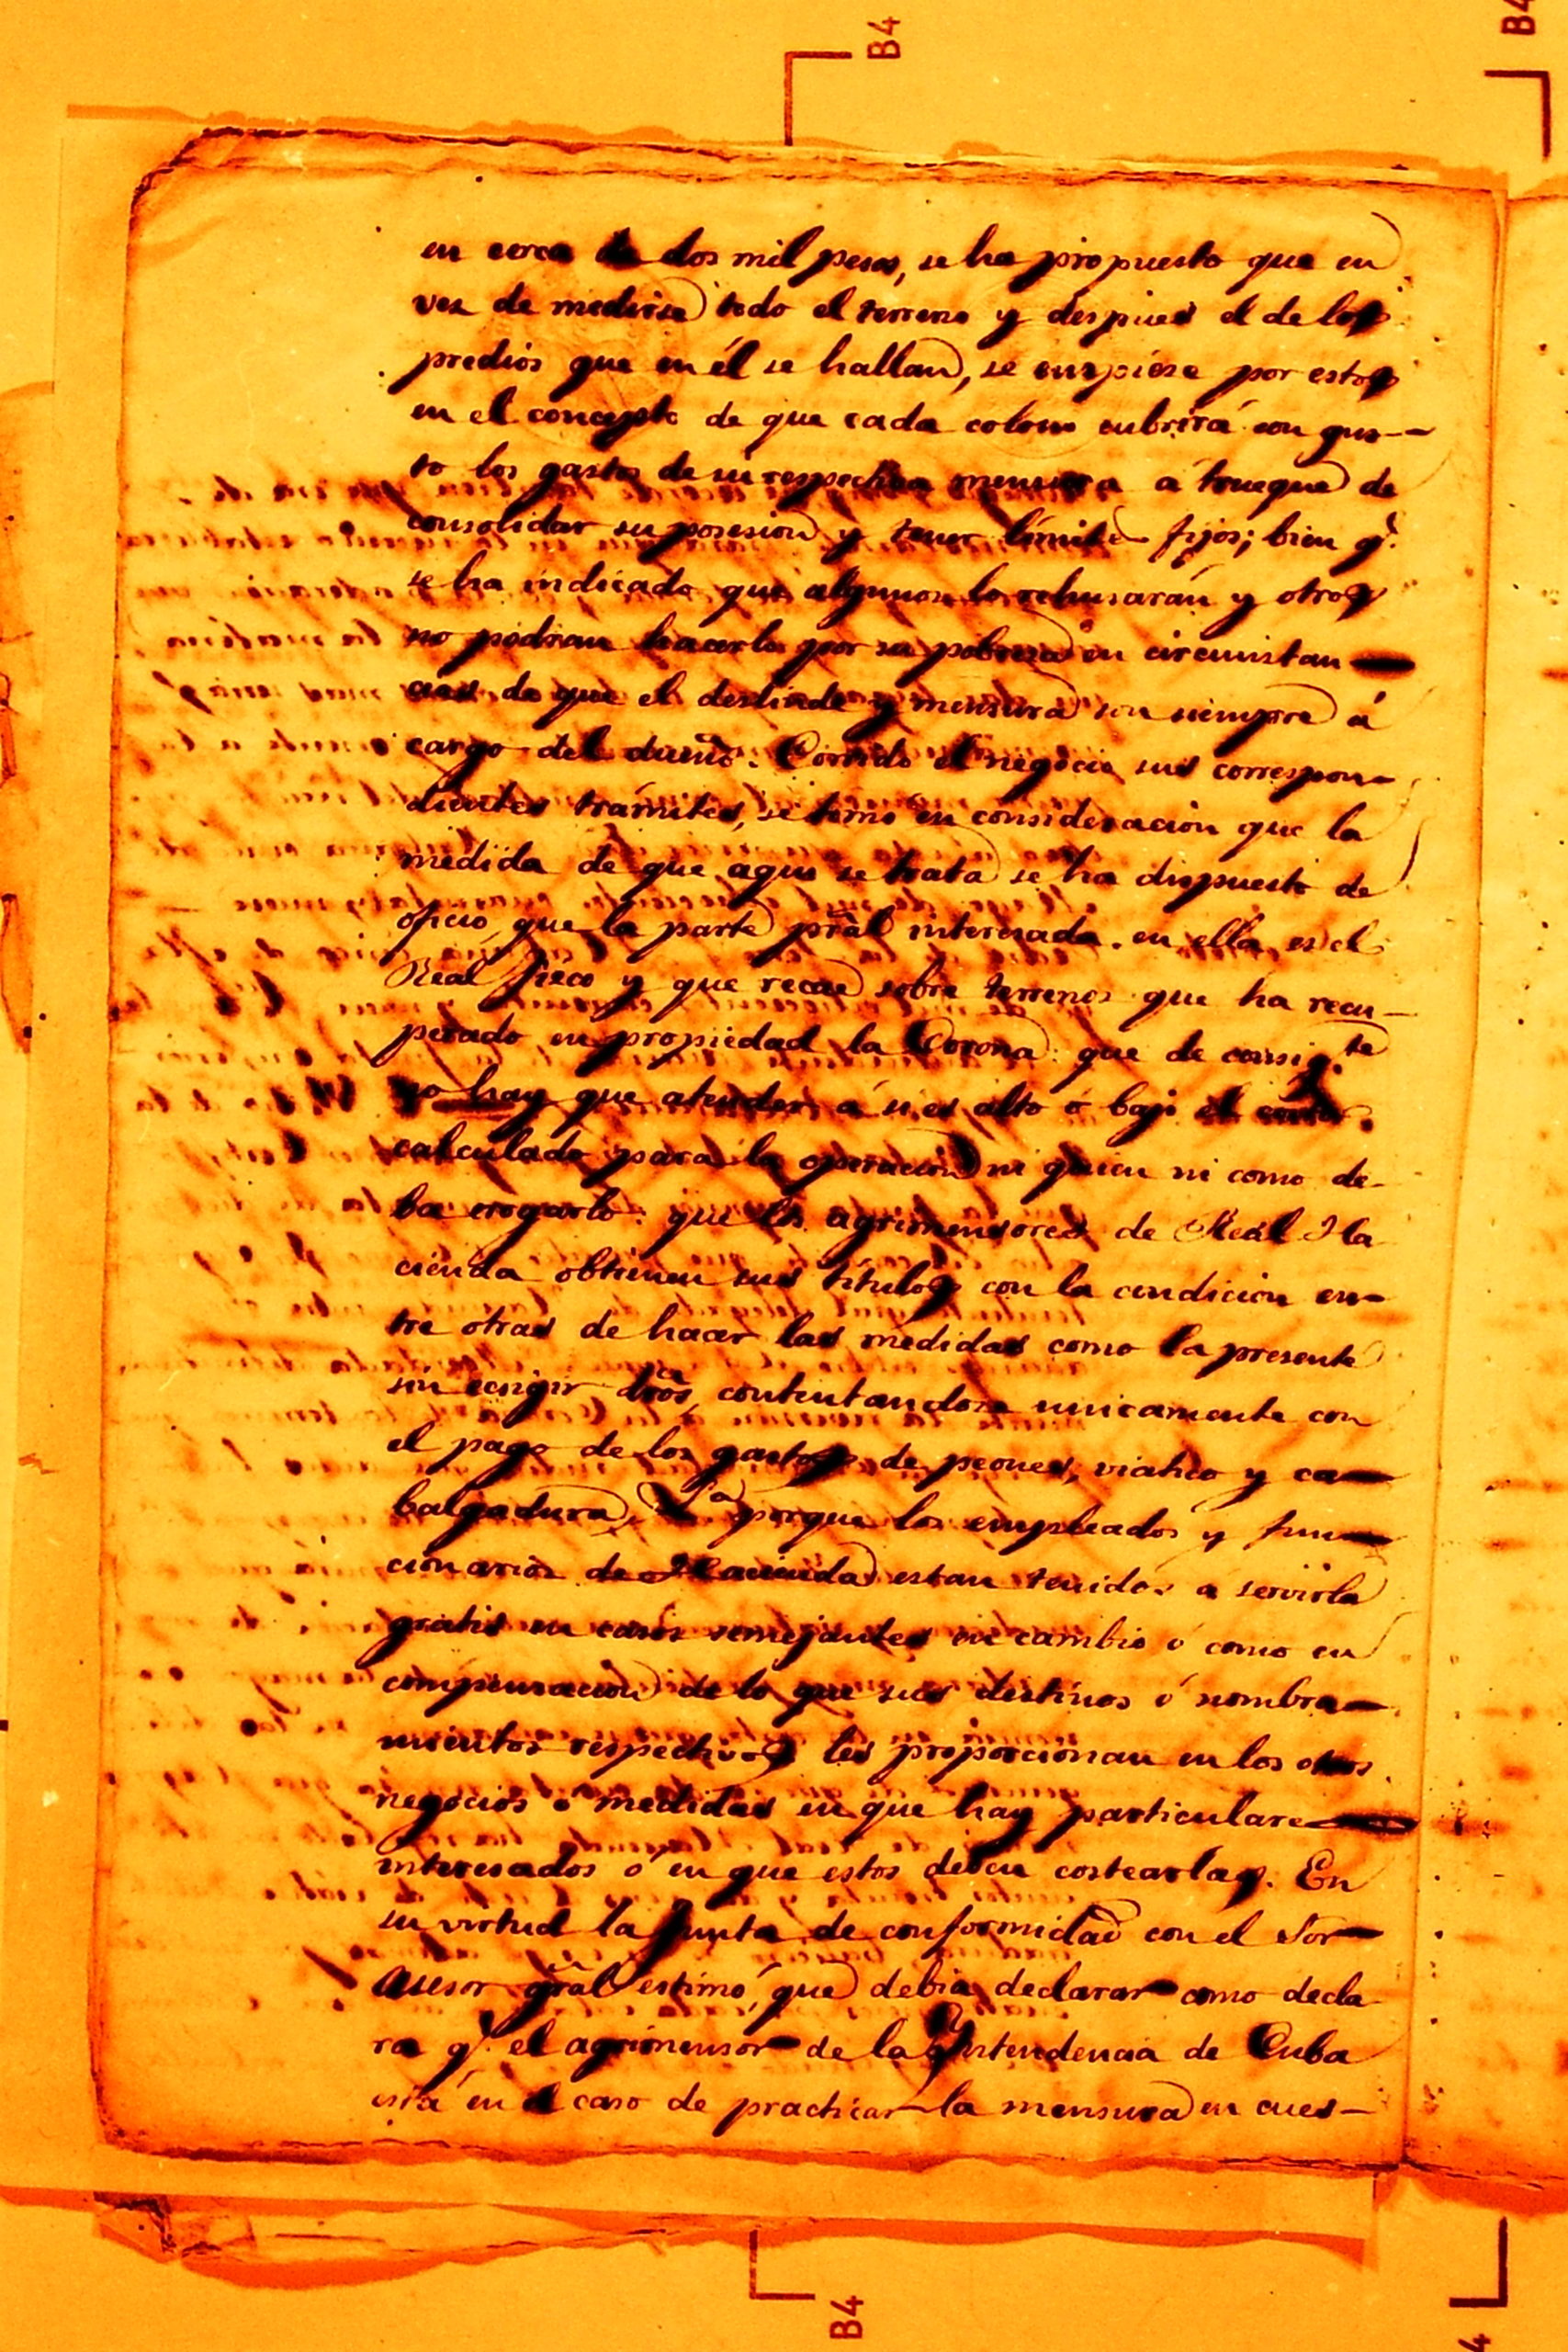 B4
B4
en cerca de dos mil pesos, se ha propuesto que en
vez de medirse todo el terreno y despues el de los
predios que en él se hallan, se empiese por estos
en el concepto de que cada colono cubrirá con gus-
to los gastos de su respectiva mensura a trueque de
consolidar su posesion y tener límites fijos; bien q.e
se ha indicado que algunos lo rehusarán y otros
no podrian hacerlo por su pobreza en circunstan
cias de que el deslinde y mensura son siempre á
cargo del dueño. Corrido el negocio sus correspon-
dientes trámites, se tomó en consideracion que la
medida de que aqui se trata se ha dispuesto de
oficio, que la parte pral interesada en ella es el
Real Fisco y que recae sobre terrenos que ha recu-
perado en propiedad la Corona: que de consig.te
no hay que atender á si es alto ó bajo el
calculado para la operacion ni quien ni como de-
ba erogarlo: que los agrimensores de Real Ha
cienda obtienen sus títulos con la condicion en-
tre otras de hacer las medidas como la presente
sin ecsigir dros, contentandose unicamente con
el pago de los gastos de peones, viatico y ca-
balgadura, porque los empleados y fun-
cionarios de Hacienda estan tenidos a servirla
gratis en casos semejantes en cambio ó como en
compensacion de lo que sus destinos ó nombra-
mientos respectivos les proporcionan en los otros
negocios ó medidas en que hay particulares
interesados ó en que estos deben costearlas. En
su virtud la Junta de conformidad con el Sor
Asesor gral estimó, que debia declarar como decla
ra q.e el agrimensor de la Yntendencia de Cuba
está en el caso de practicar la mensura en cues-
B4
4